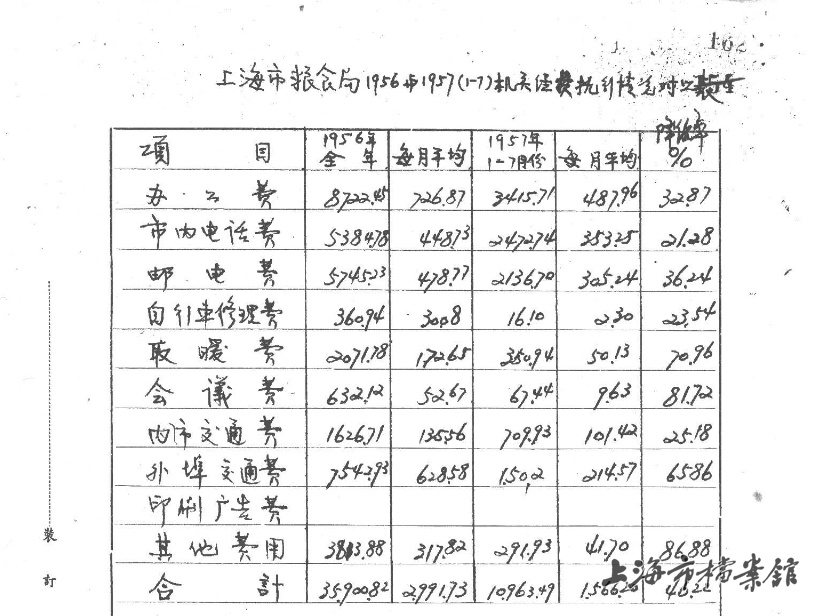 162
上海市粮食局1956与1957(1-7)机关经费执行情况对比表
項目 1956年全年 每月平均 1957年1-7月份 每月平均 降低率%
办公费 8722.45 726.87 3415.71 487.96 32.87
市内电话费 5384.78 448.73 2472.74 353.25 21.28
邮电费 5745.23 478.77 2136.70 305.24 36.24
自行車修理费 360.94 30.08 16.10 2.30 23.54
取暖费 2071.78 172.65 350.94 50.13 70.96
会議费 632.12 52.67 67.44 9.63 81.72
内市交通费 1626.71 135.56 709.93 101.42 25.18
外埠交通费 7542.93 628.58 1.502 214.57 65.86
印刷广告费
其他费用 3813.88 317.82 291.93 41.70 86.88
合計 35900.82 2,991.73 10963.49
裝
訂
上海市檔案館